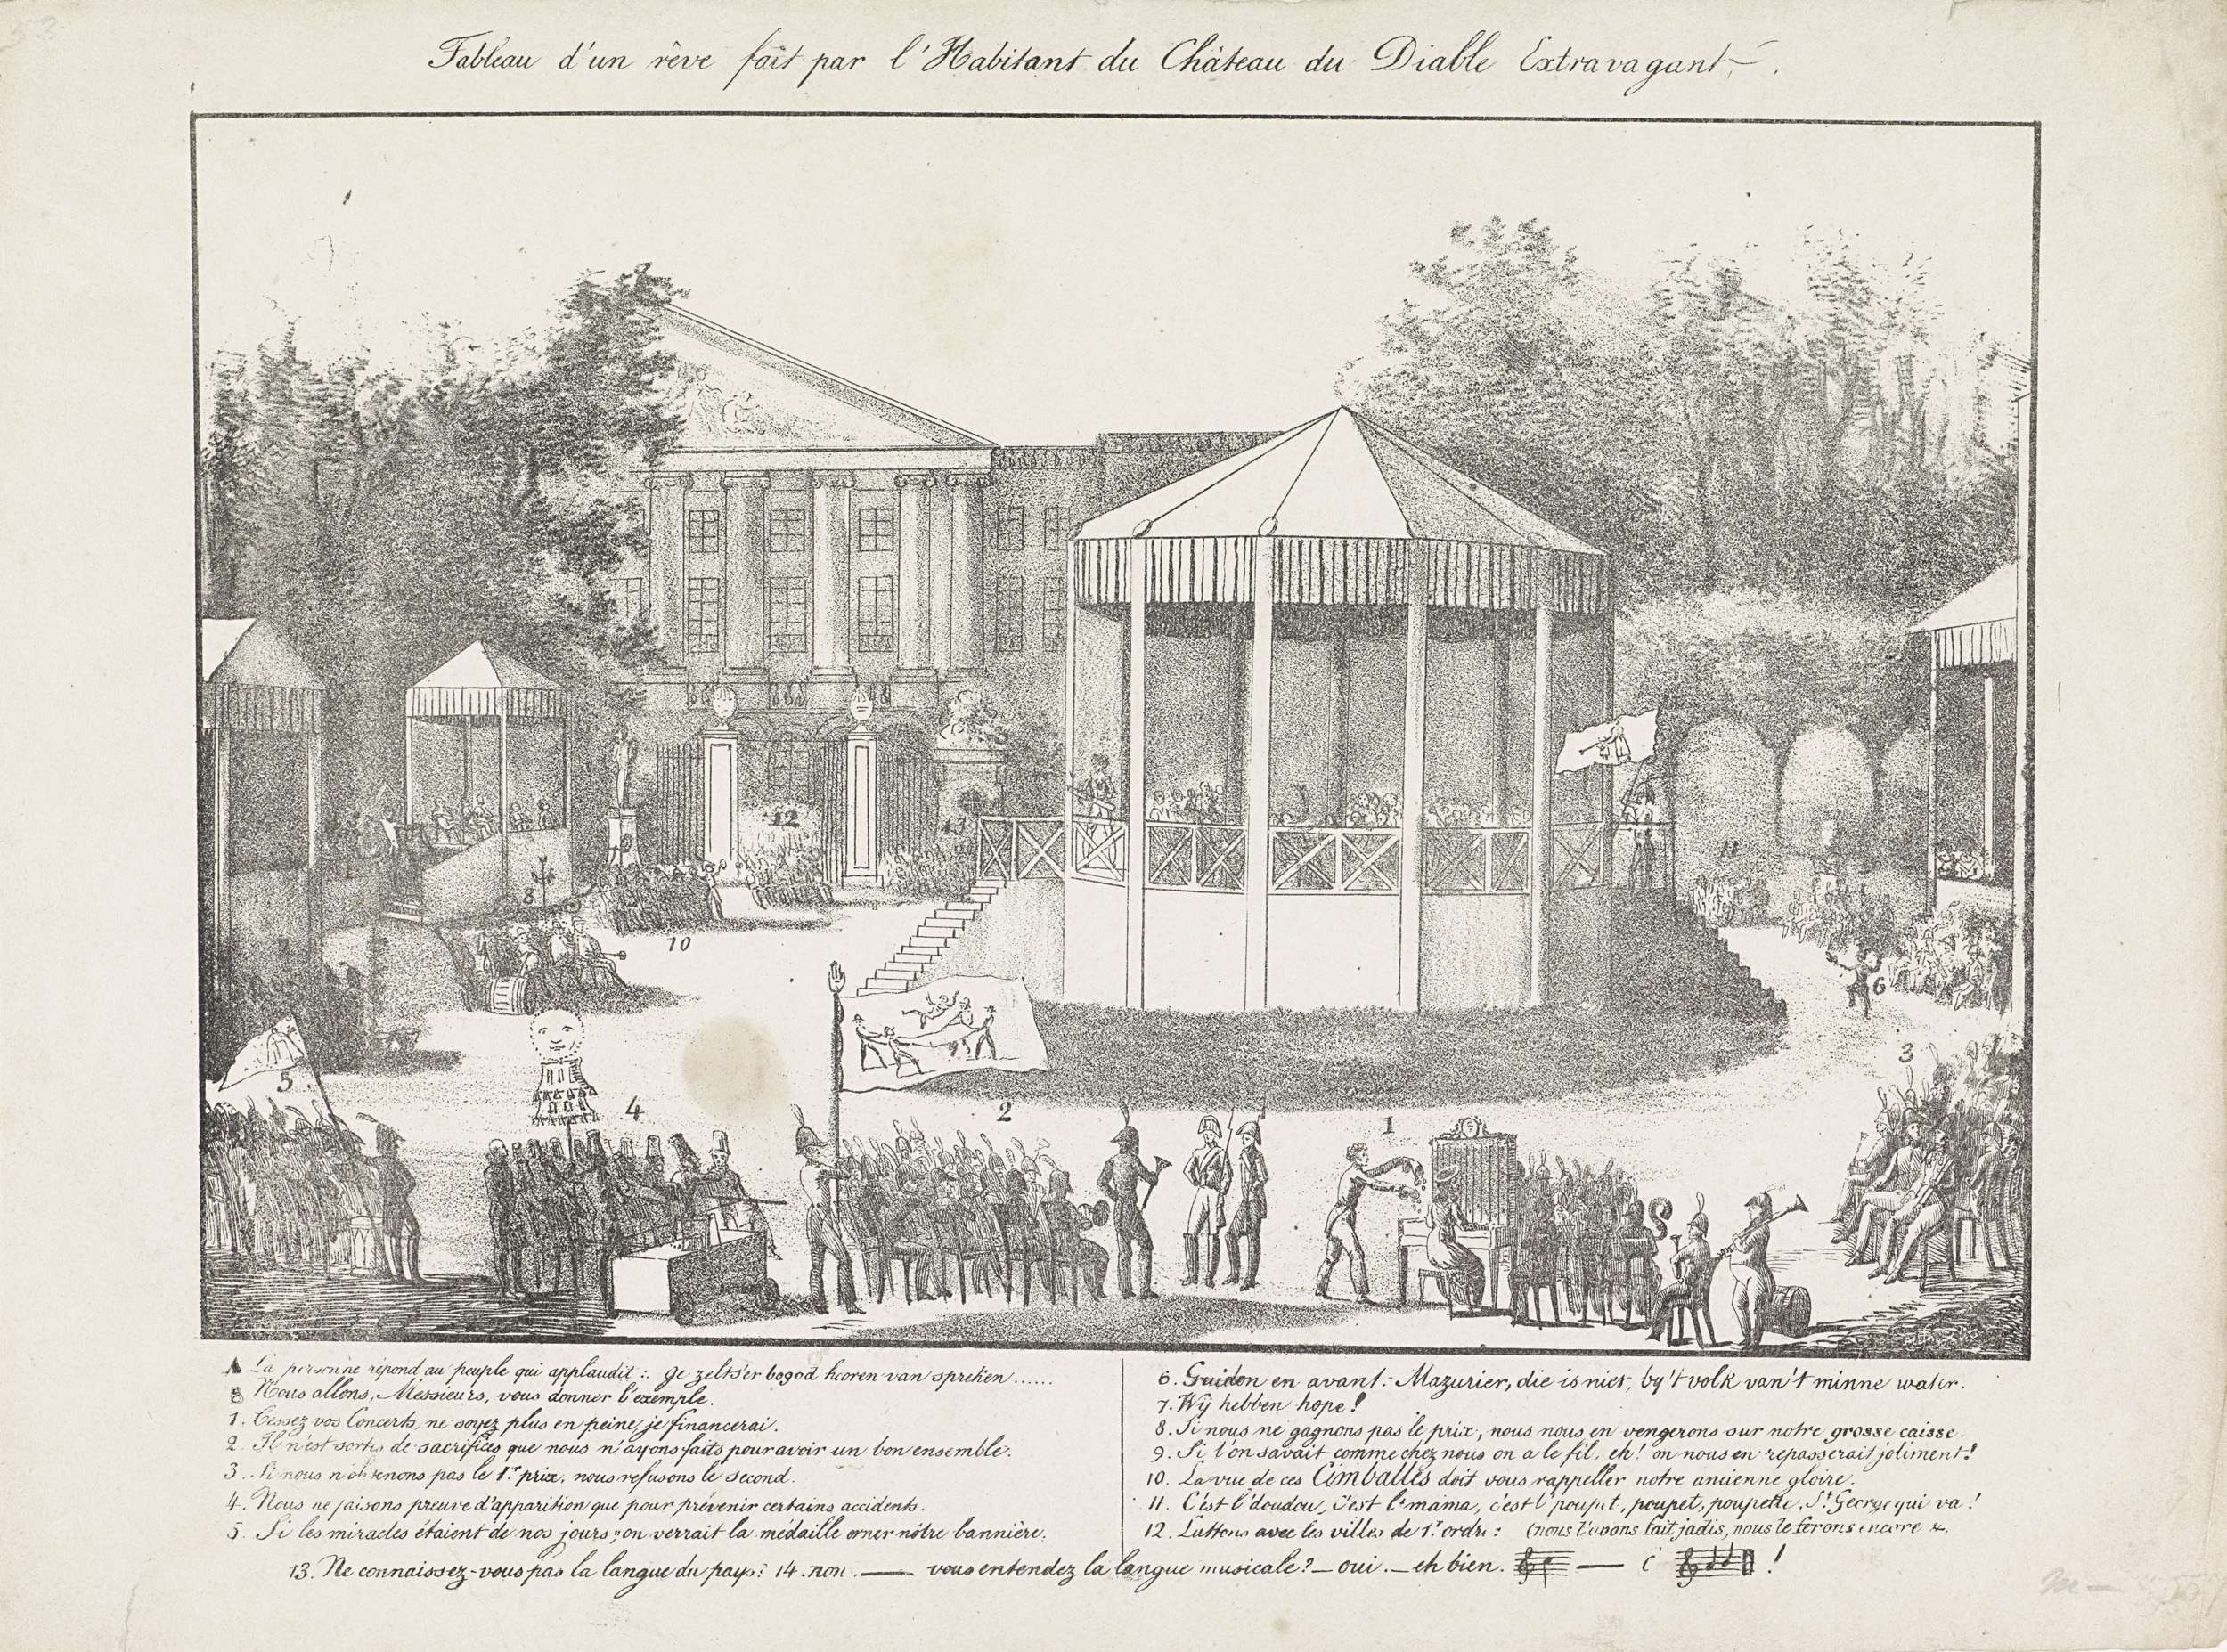 Tableau d'un rêve fait par l'Habitant du Château du Diable Extravagant.
8
12
13
11
10
6
5
4
2
1
3
A La personne répond au peuple qui applaudit: Ge zelt'er bogod hooren van spreken......
8 Nous allons, Messieurs, vous donner l'exemple.
1. Cessez vos Concerts, ne soyez plus en peine, je financerai.
2. Il n'est sortes de sacrifices que nous n'ayons faits pour avoir un bon ensemble.
3. Si nous n'obtenons pas le 1.r prix, nous refusons le second.
4. Nous ne faisons preuve d'apparition que pour prévenir certains accidents.
5. Si les miracles étaient de nos jours, on verrait la médaille orner nôtre bannière.
6. Guidon en avant: Mazurier, die is niet, by't volk van't minne water.
7. Wij hebben hope!
8. Si nous ne gagnons pas le prix, nous nous en vengerons sur notre grosse caisse
9. Si l'on savait comme chez nous on a le fil, eh! on nous en repasserait joliment!
10. La vue de ces Cimballes doit vous rappeller notre ancienne gloire.
11. C'est l'doudou, c'est l'mama, c'est l'poupet, poupet, poupette, S.t George qui va!
12. Luttons avec les villes de 1.r ordre: (nous l'avons fait jadis, nous le ferons encore &.
13. Ne connaissez-vous pas la langue du pays? 14. non. — vous entendez la langue musicale? — oui. — eh bien. — !